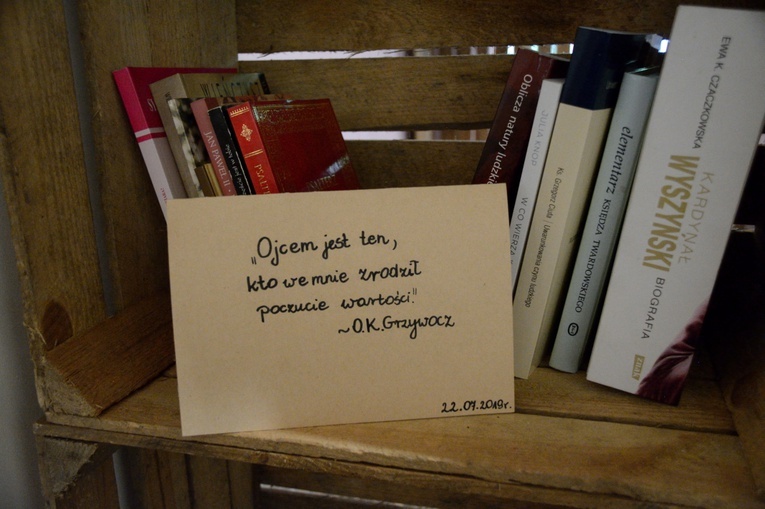 „Ojcem jest ten,
kto we mnie zrodził
poczucie wartości."
~O.K.Grzywocz
22.07.2019r.
JAN PAWEŁ II
Oblicza natury ludzkiej
JULIA KNOP
W CO WIERZĄ
elementarz KSIĘDZA TWARDOWSKIEGO
EWA K. CZACZKOWSKA
KARDYNAŁ
WYSZYŃSKI
BIOGRAFIA
ZNAK